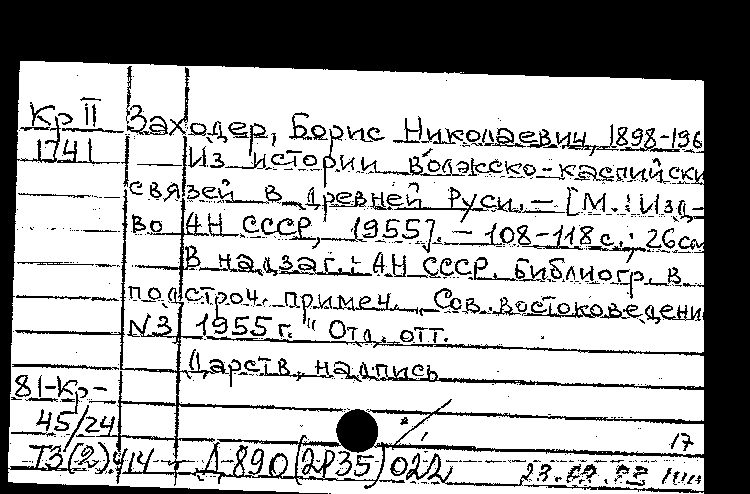 Кр II Заходер, Борис Николаевич, 1898-196
1741 Из истории волжско-каспийски
связей в древней Руси. — [М.: Изд-
во АН СССР, 1955]. — 108-118 с.; 26см
В надзаг.: АН СССР. Библиогр. в
подстроч. примеч. „Сов. востоковедени
N3, 1955 г." Отд. отт.
Дарств. надпись
81-Кр-
45/24
17
ТЗ(2).414 Д-890(2Р35)022